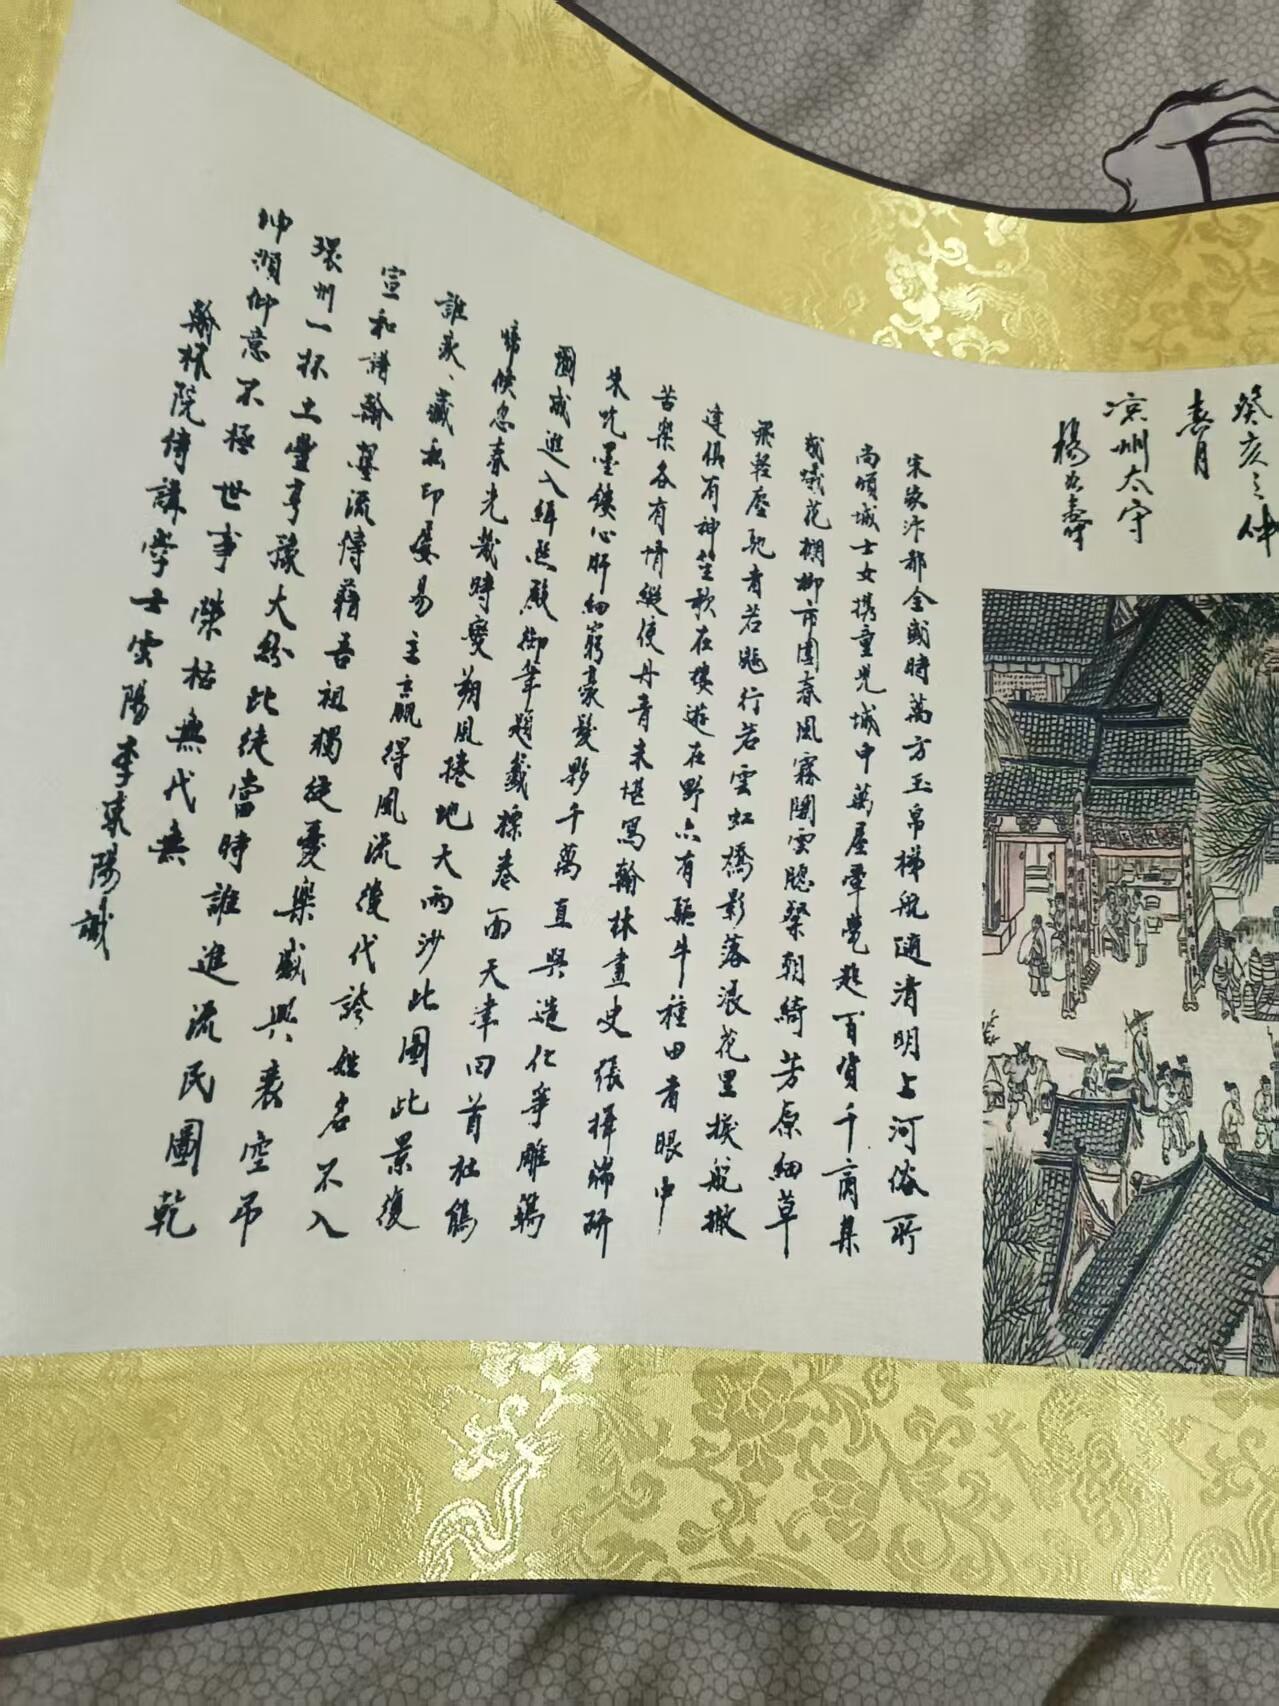 癸亥之仲
春月
凉州太守
楊 壽
宋家汴都全盛時萬方玉帛梯航隨清明上河俗所
尚頃城士女攜童兒城中萬屋翬甍起百貨千商集
成蟻花棚柳市圍春風霧閣雲牕粲朝綺芳原細草
飛輕塵馳者若飈行若雲虹橋影落浪花里捩舵撇
篷俱有神笙歌在樓遊在野亦有驅牛種田者眼中
苦樂各有情縱使丹青未堪寫翰林畫史張擇端研
朱吮墨鏤心肝細窮毫髮夥千萬直與造化爭雕鐫
圖成進入緝熙殿御筆題籤標卷面天津回首杜鵑
啼倏忽春光幾時變朔風捲地大雨沙此圖此景復
誰家、藏私印屢易主贏得風流後代誇姓名不入
宣和譜翰墨流傳藉吾祖獨從憂樂感興衰空弔
環州一抔土豐亨豫大紛此徒當時誰進流民圖乾
坤頫仰意不極世事榮枯無代無
翰林院侍講學士雲陽李東陽識